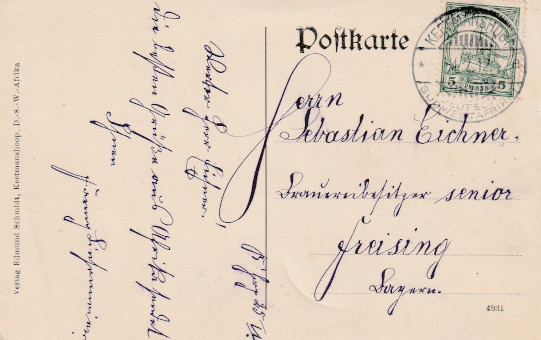 Postkarte
KEETMANSHOOP
DEUTSCH-
SÜDWESTAFRIKA
5 5
Herrn
Sebastian Eichner.
Brauereibesitzer senior
Freising
Bayern.
4931
Werther Herr Eichner,
die besten Grüße aus Afrika sendet
Ihnen
Verlag Edmund Schmidt, Keetmanshoop D.-S.-W.-Afrika